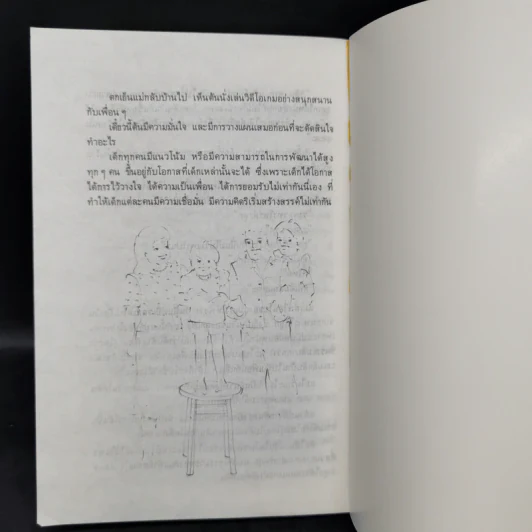 ตกเย็นแม่กลับบ้านไป เห็นต้นนั่งเล่นวิดีโอเกมอย่างสนุกสนาน
กับเพื่อน ๆ
เดี๋ยวนี้ต้นมีความมั่นใจ และมีการวางแผนเสมอก่อนที่จะตัดสินใจ
ทำอะไร
เด็กทุกคนมีแนวโน้ม หรือมีความสามารถในการพัฒนาได้สูง
ทุก ๆ คน ขึ้นอยู่กับโอกาสที่เด็กเหล่านั้นจะได้ ซึ่งเพราะเด็กได้โอกาส
ได้การไว้วางใจ ได้ความเป็นเพื่อน ได้การยอมรับไม่เท่ากันนี่เอง ที่
ทำให้เด็กแต่ละคนมีความเชื่อมั่น มีความคิดริเริ่มสร้างสรรค์ไม่เท่ากัน